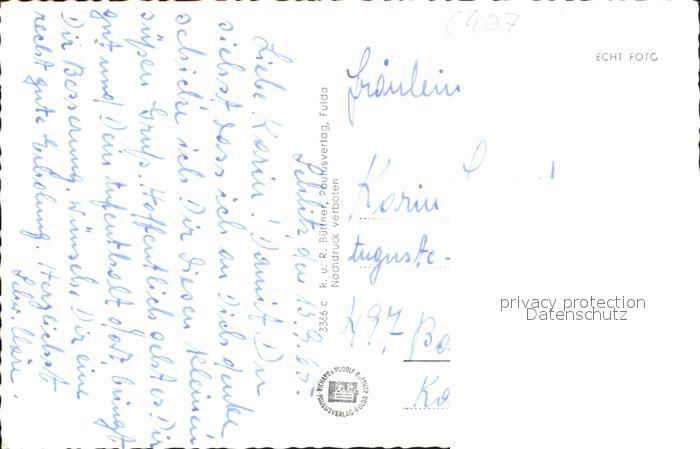 Schlitz, den 13.9.65.
Liebe Karin! Damit Du
siehst dass ich an Dich denke,
schicke ich Dir diesen kleinen
süßen Gruß. Hoffentlich geht es Dir
gut und Dein Aufenthalt dort bringt
Dir Besserung. Wünsche Dir eine
recht gute Erholung. Herzlichst
3366 c R. u. R. Büttner, Paulusverlag, Fulda
Nachdruck verboten
6407
ECHT FOTO
Fräulein
Karin
Auguste-
497
Ko
RICHARD u. RUDOLF BÜTTNER
PAULUSVERLAG · FULDA
privacy protection
Datenschutz